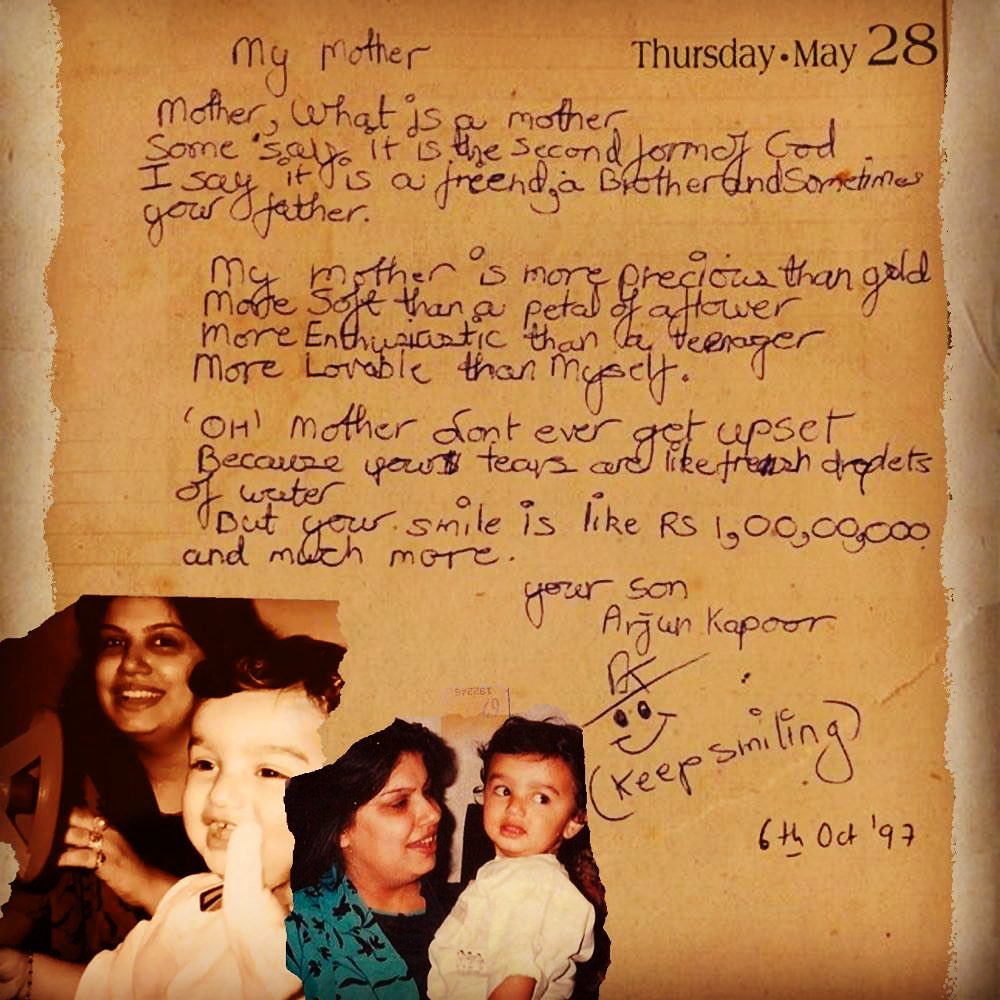 My Mother
Thursday • May 28
Mother, What is a mother
Some say it is the second form of God
I say it is a freend, a Brother and Sometimes
your father.
My mother is more precious than gold
More Soft than a petal of a flower
More Enthusiastic than a teenager
More Lovable than Myself.
'OH' mother dont ever get upset
Because your tears are like fresh droplets
of water
But your smile is like RS 1,00,00,000
and much more.
your son
Arjun Kapoor
AK
(keep smiling)
6th Oct '97
192246